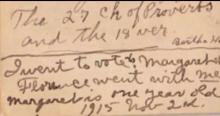 The 27 ch of Proverbs
and the 18 ver.
I went to vote Margaret
Florence went with me
Margaret is one year old
1915 Nov 2nd.